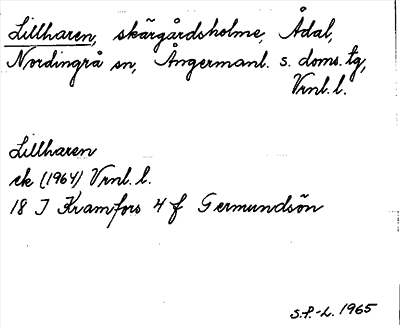 Lillharen, skärgårdsholme, Ådal,
Nordingrå sn, Ångermanl. s. doms. tg,
Vrnl. l.
Lillharen
ek (1964) Vrnl. l.
18 I Kramfors 4 f Germundsön
S.P.-L. 1965